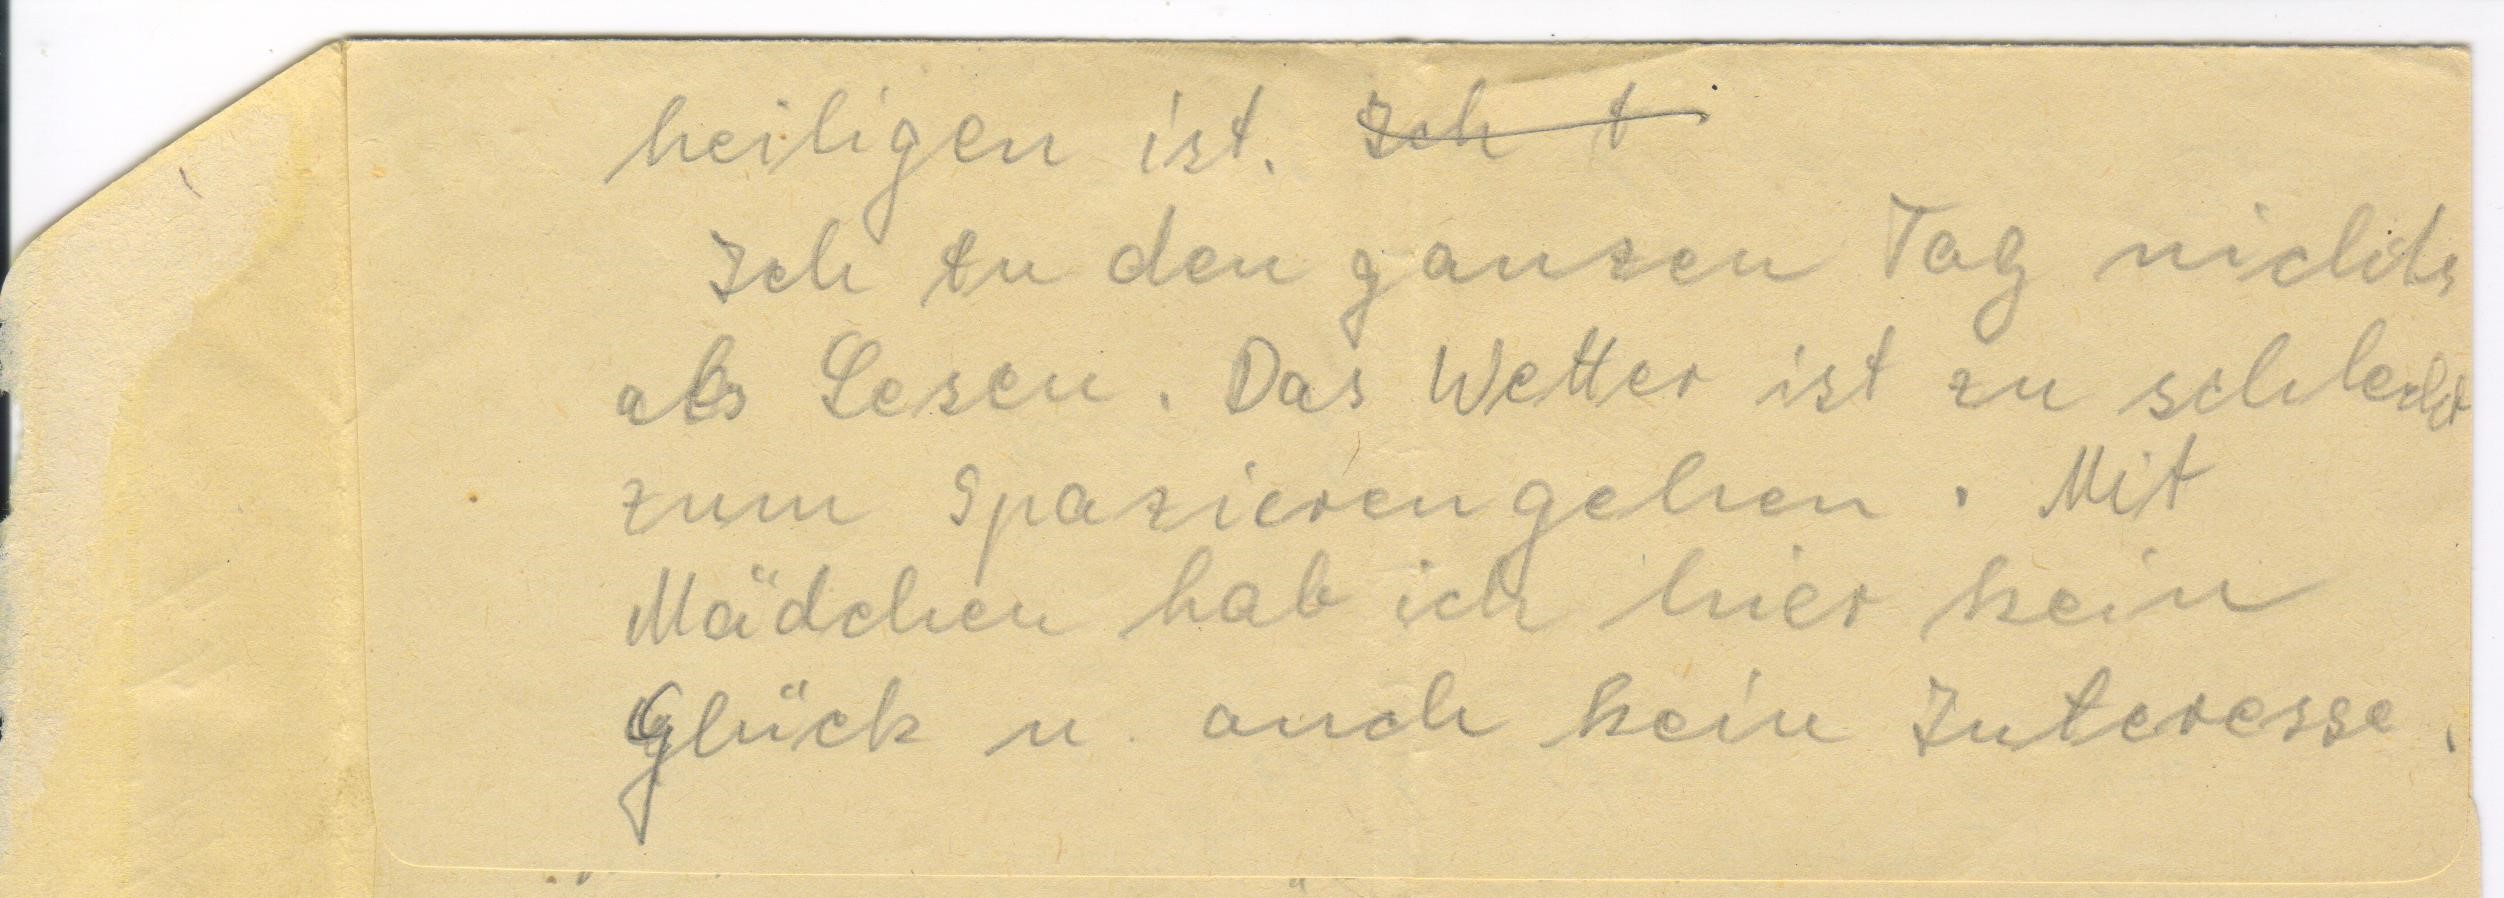 heiligen ist. Ich t
Ich tu den ganzen Tag nichts
als Lesen. Das Wetter ist zu schlecht
zum Spazierengehen. Mit
Mädchen hab ich hier kein
Glück u. auch kein Interesse.